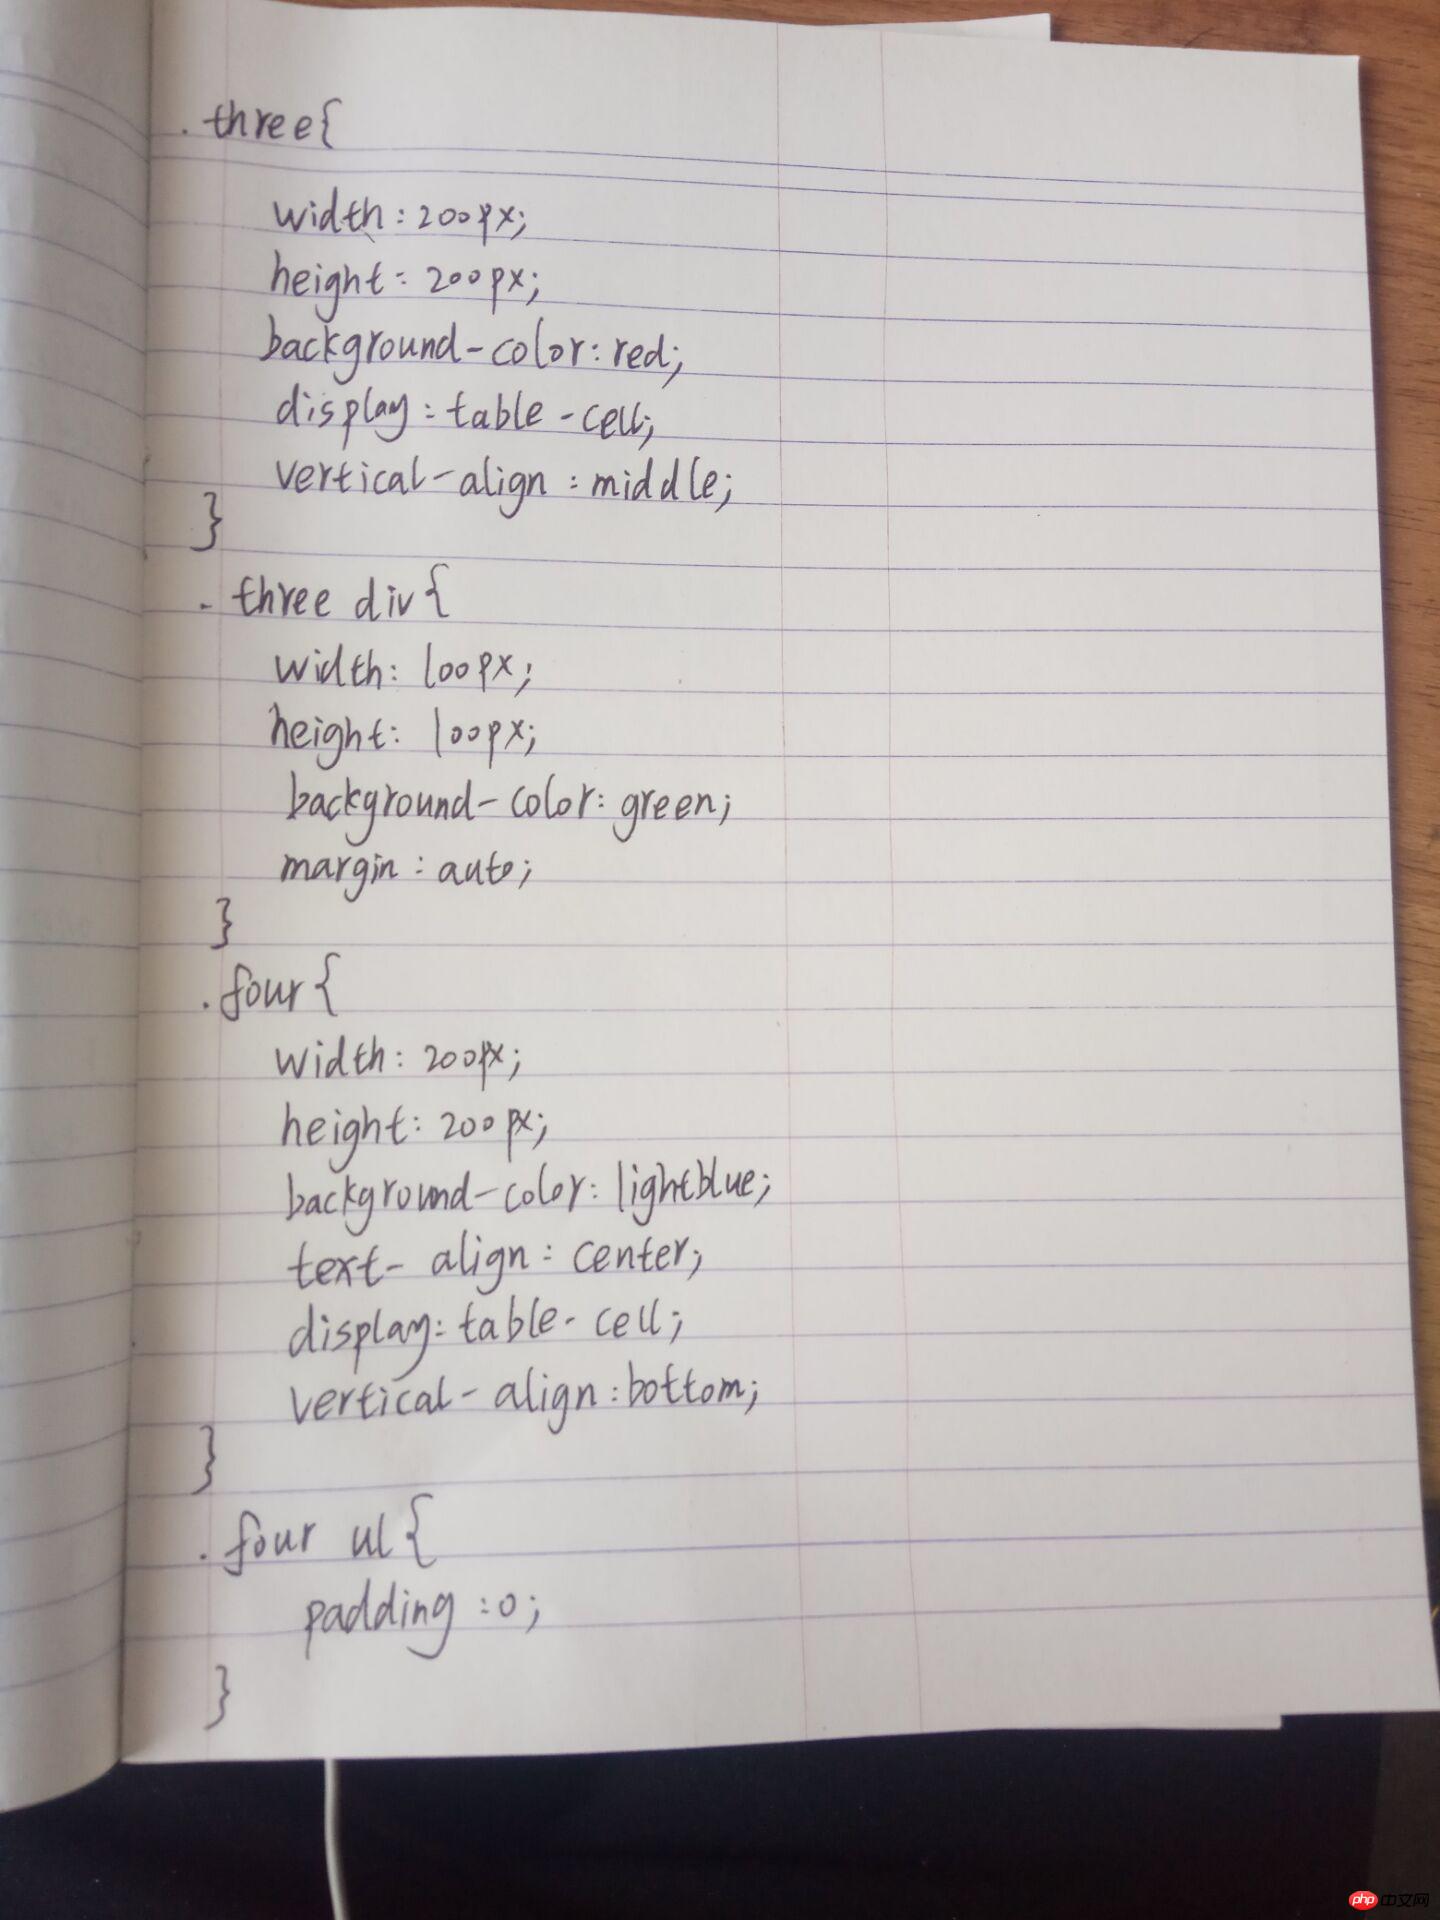 .three{
width:200px;
height:200px;
background-color:red;
display:table-cell;
vertical-align:middle;
}
.three div{
width:100px;
height:100px;
background-color:green;
margin:auto;
}
.four{
width:200px;
height:200px;
background-color:lightblue;
text-align:center;
display:table-cell;
vertical-align:bottom;
}
.four ul{
padding:0;
}
php 中文网